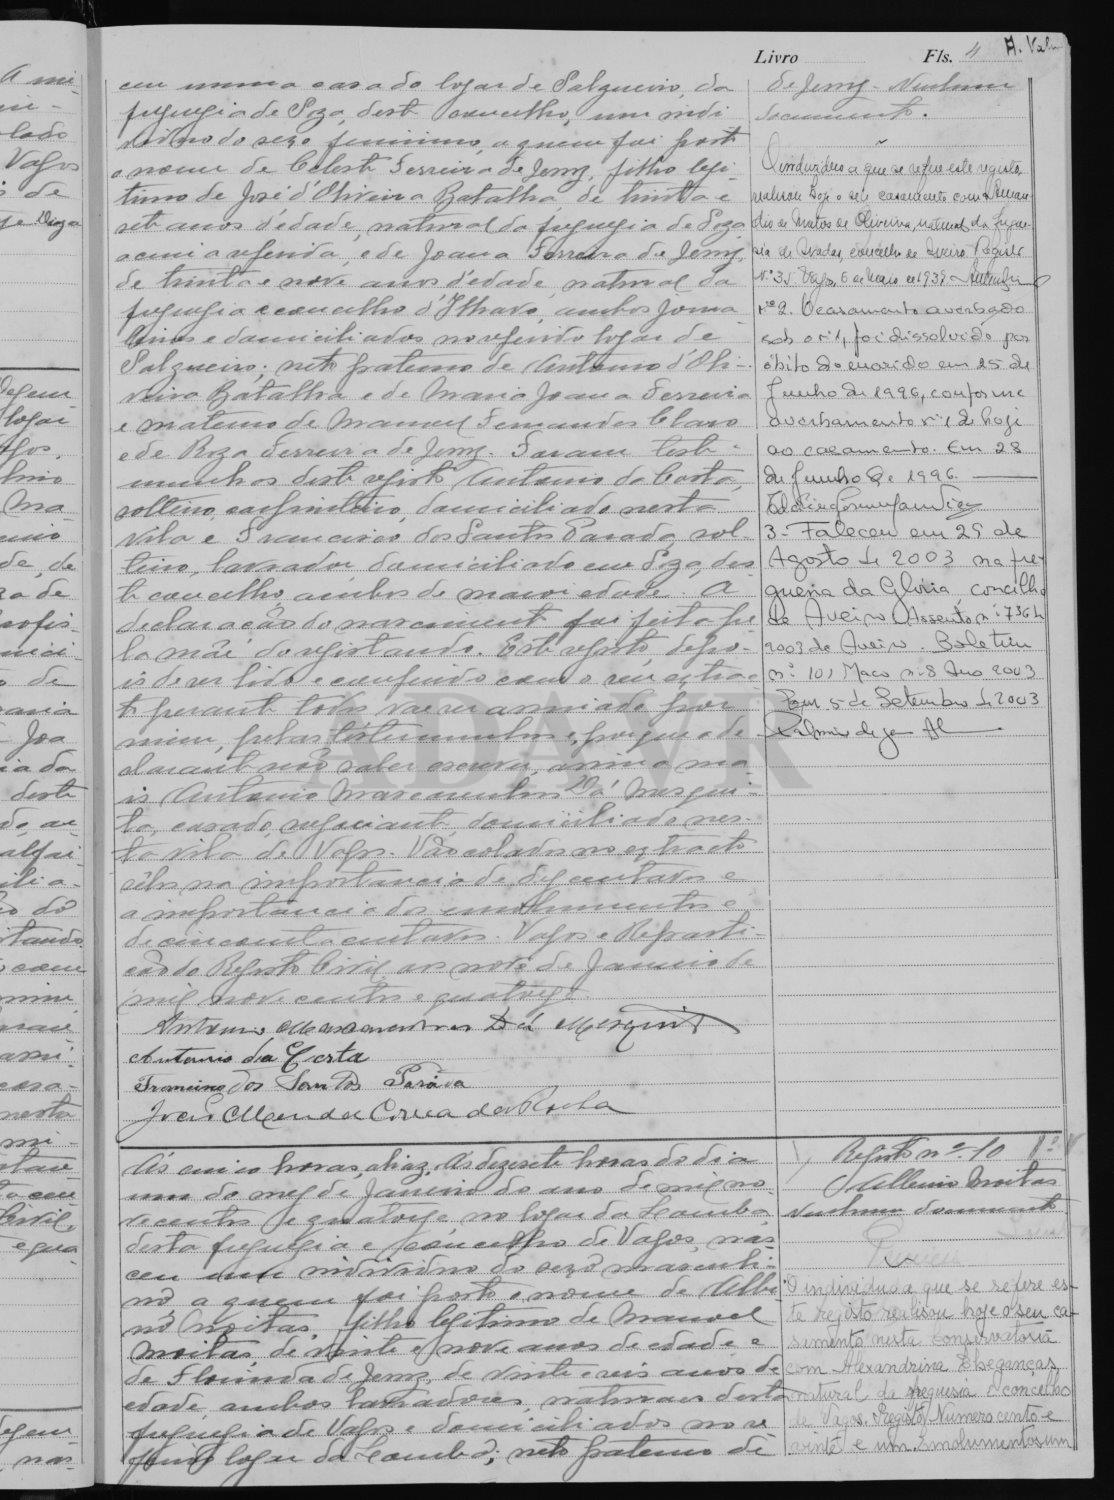 Livro Fls. 4
ceu numa casa do logar de Salgueiro, da
freguezia de Soza, deste concelho, um indi
viduo do sexo feminino, a quem foi posto
o nome de Celeste Ferreira de Jesus, filho legi-
timo de José d'Oliveira Batalha, de trinta e
sete anos d'edade, natural da freguezia de Soza
acima referida, e de Joana Ferreira de Jesus,
de trinta e nove anos d'edade, natural da
freguezia e concelho d'Ilhavo, ambos jorna
leiros e domiciliados no referido logar de
Salgueiro; neto paterno de Antonio d'Oli-
veira Batalha e de Maria Joana Ferreira
e materno de Manuel Fernandes Claro
e de Roza Ferreira de Jesus. Foram teste-
munhas deste registo Antonio da Costa,
solteiro, carpinteiro, domiciliado nesta
vila e Francisco dos Santos Parada, sol-
teiro, lavrador, domiciliado em Soza, des
te concelho, ambos de maior edade. A
declaração do nascimento foi feita pe
la mãe do registando. Este registo, depo-
is de ser lido e conferido com o seu extra-
to perante todos vae ser assinado por
mim, pelas testemunhas e, porque a de
clarante não saber escrever, assina ma-
is Antonio Mascarenhas de Mesqui-
ta, casado, negociante, domiciliado nes-
ta vila de Vagos. Vão colados no extracto
sêlos na importancia de dez centavos e
a importancia dos emolumentos é
de cincoenta centavos. Vagos e Reparti-
ção do Registo Civil, aos nove de Janeiro de
mil nove centos e quatorze.
Antonio Mascarenhas de Mesquita
Antonio da Costa
Francisco dos Santos Parada
João Mendes Correa da Rocha
de Jesus. Nenhum
documento.
O individuo a que se refere este registo
realisou hoje o seu casamento com
de Matos de Oliveira, natural da fregue-
sia de concelho de Aveiro. Registo
N.º 35. Vagos, 6 de Maio de 1939.
Nº 2. O casamento averbado
sob o nº 1, foi dissolvido por
óbito do marido em 25 de
Junho de 1996, conforme
averbamento nº 1 de hoje
ao casamento. Em 28
de Junho de 1996.
3- Faleceu em 25 de
Agosto de 2003 na fre-
guesia da Glória, concelho
de Aveiro Assento nº 736 de
2003 de Aveiro. Boletim
nº 101 Maço nº 8 Ano 2003
Em 5 de Setembro de 2003
Ás cinco horas, aliaz, Ás dezesete horas do dia
um do mez de Janeiro do ano de mil no-
ve centos e quatorze, no logar da Lomba,
desta freguezia e concelho de Vagos, nas-
ceu um individuo do sexo masculi-
no, a quem foi posto o nome de Albi-
no Moitas, filho legitimo de Manoel
Moitas, de vinte e nove anos de edade, e
de Florinda de Jesus, de vinte e seis anos de
edade, ambos lavradores, naturaes desta
freguezia de Vagos e domiciliados no re
ferido logar da Lomba; neto paterno de
Registo nº 10
Albino Moitas
Nenhum documento
O individuo a que se refere es-
te registo realisou hoje o seu ca-
samento nesta conservatória
com Alexandrina
natural da freguesia e concelho
de Vagos. Registo Numero cento e
vinte e um. Emolumentos um